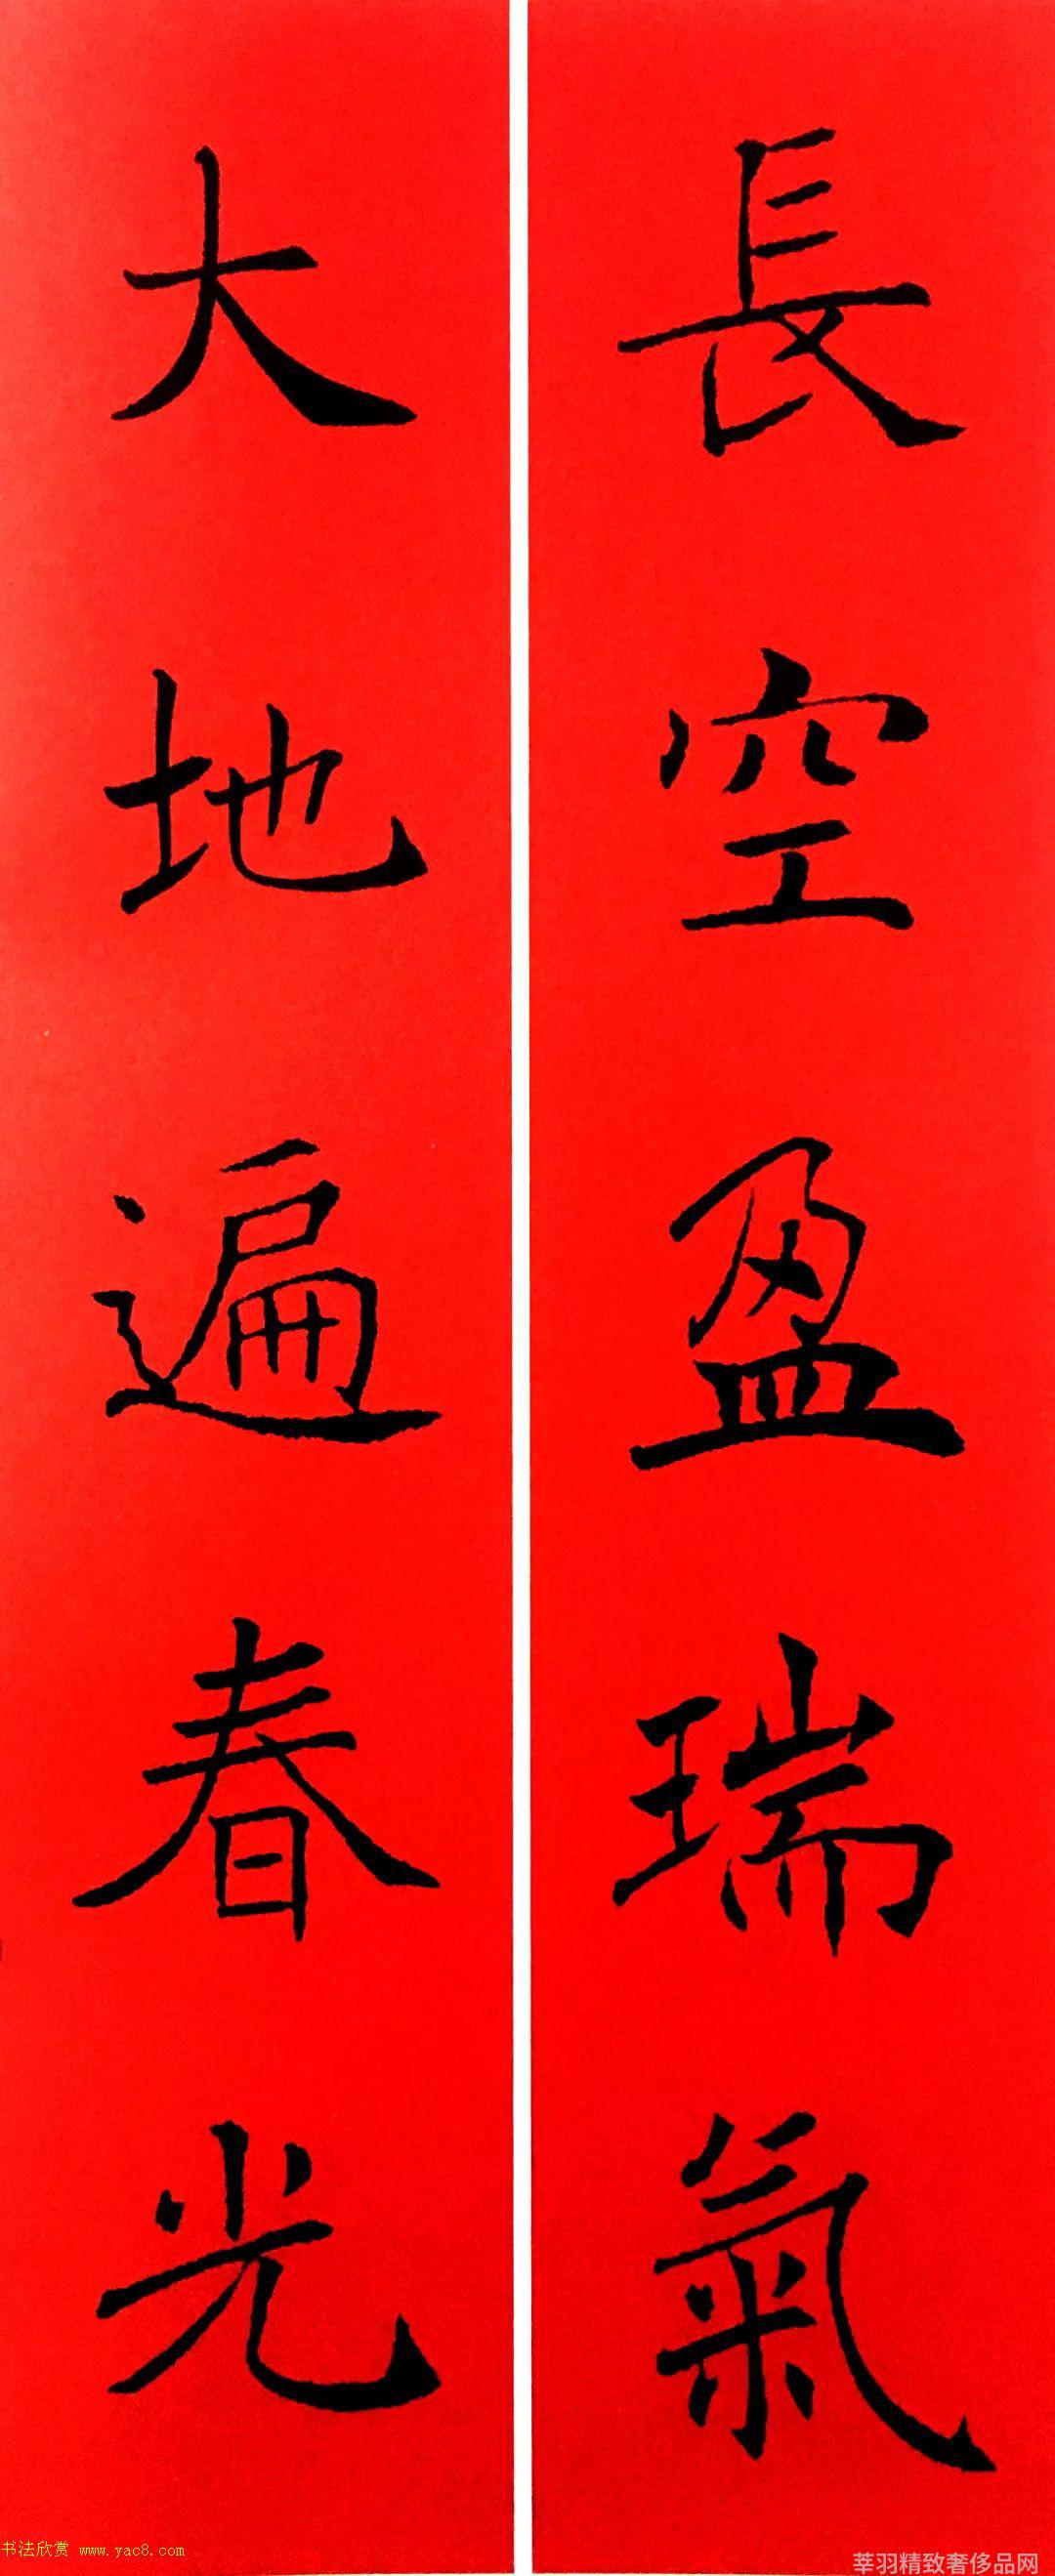 長空盈瑞氣
大地遍春光
书法欣赏 www.yac8.com
莘羽精致奢侈品网